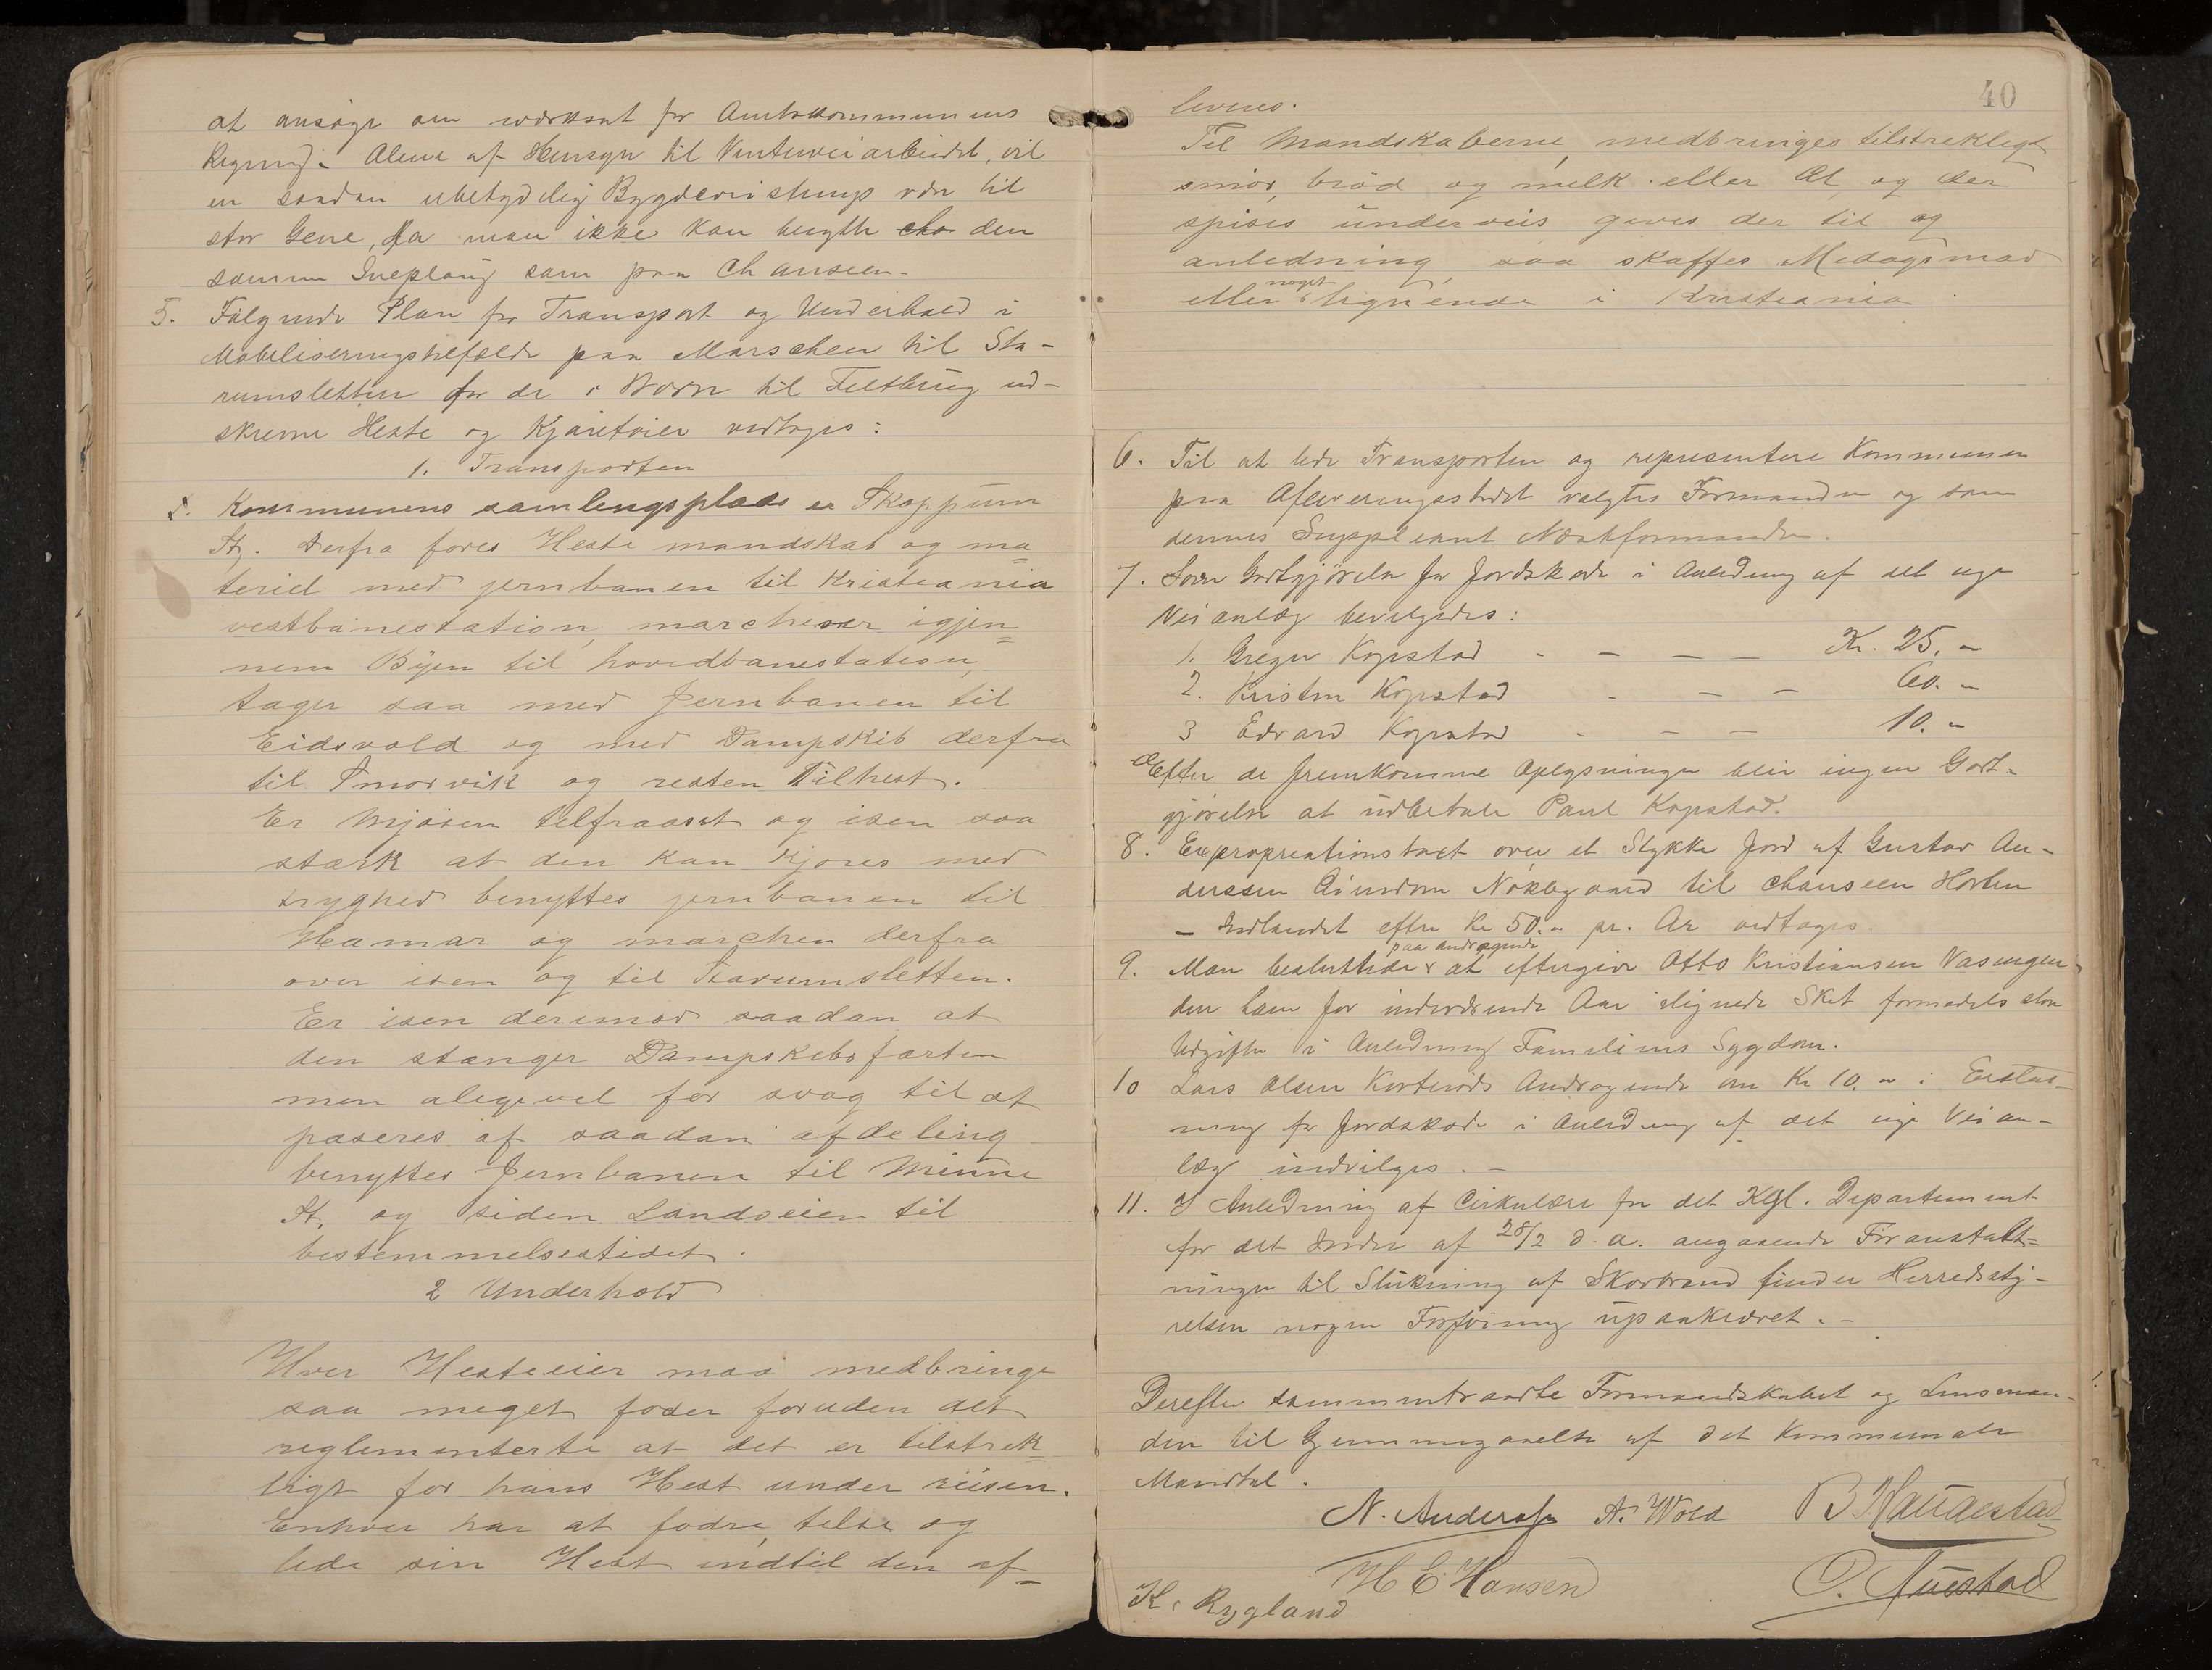 at ansøge om iværksat for Amtskommunens
Regning. Alene af Hensyn til Vinterveiarbeidet, vil
en saadan ubetydelig Bygdeveistump være til
stor Gene, da man ikke kan benytte cha den
samme Sneploug som paa Chauseen.
5. Følgende Plan for Transport og Underhold i
Mobiliseringstilfælde paa Marschen til Sta-
rumsletten for de i Borre til Feltbrug ud-
skrevne Heste og Kjøretøier vedtages:
1. Transporten
Kommunens samlingsplads er Skoppum
St. Derfra føres Heste mandskab og ma=
teriel med jernbanen til Kristiania
vestbanestation, marcherer igjen=
nem Byen til hovedbanestation,
tager saa med Jernbanen til
Eidsvold og med Dampskib derfra
til Smørvik og resten Tilhest.
Er Mjøsen tilfraaset og isen saa
stærk at den kan kjøres med
tryghed benyttes jernbanen til
Hamar og marchen derfra
over isen og til Starumsletten.
Er isen derimod saadan at
den stænger Dampskibsfarten
men aligevel for svag til at
paseres af saadan afdeling
benyttes Jernbanen til Minne
St. og siden Landveien til
bestemmelsestedet.
2 Underhold
Hver Hesteeier maa medbringe
saa meget foder foruden det
reglementerte at det er tilstrek=
ligt for hans Hest under reisen.
Enhver har at fodre, telse og
lede sin Hest indtil den af=
40
leveres.
Til Mandskaberne medbringes tilstrekligt
smør, brød og melk eller Øl og der
spises underveis gives der til og
anledning, saa skaffes Medagsmad
eller noget lignende i Kristiania
6. Til at lede Transporten og representere Kommunen
paa Afleveringsstedet valgtes Formanden og som
dennes Suppleant Næstformanden.
7. Som Godtgjørelse for Jordskade i Anledning af det nye
Veianlæg bevilgedes:
1. Greger Kopstad - - - - Kr. 25.-
2. Kristen Kopstad - - - 60.-
3 Edvard Kopstad - - - 10.-
Efter de fremkomne Oplysninger blir ingen Godt-
gjørelse at udbetale Paul Kopstad.
8. Expropriationstaxt over et Stykke Jord af Gustav An-
derssen Eiendom Nøkbygaard til Chauseen Horten
- Indlandet efter Kr 50.- pr. Ar vedtages.
9. Man besluttede paa andragende at eftergive Otto Kristiansen Vasengen
den ham for indeværende Aar ilignede Skat formedels store
Udgifter i Anledning Familiens Sygdom.
10 Lars Olsen Korterøds Andragende om Kr 10.- i Erstat-
ning for Jordskade i Anledning af det nye Veian-
læg indvilges. -
11. I Anledning af Cirkulære fra det Kgl. Departement
for det Indre af 28/2 d.a. angaaende Foranstalt=
ninger til Slukning af Skovbrand finder Herredssty-
relsen nogen Forføining upaakrævet. -
Derefter sammentraadte Formandskabet og Lensman-
den til Gjennemgaaelse af det Kommunale
Mandtal.
N. Anderssen A. Wold B Haugestad
H E Hansen O. Auestad
K. Rygland